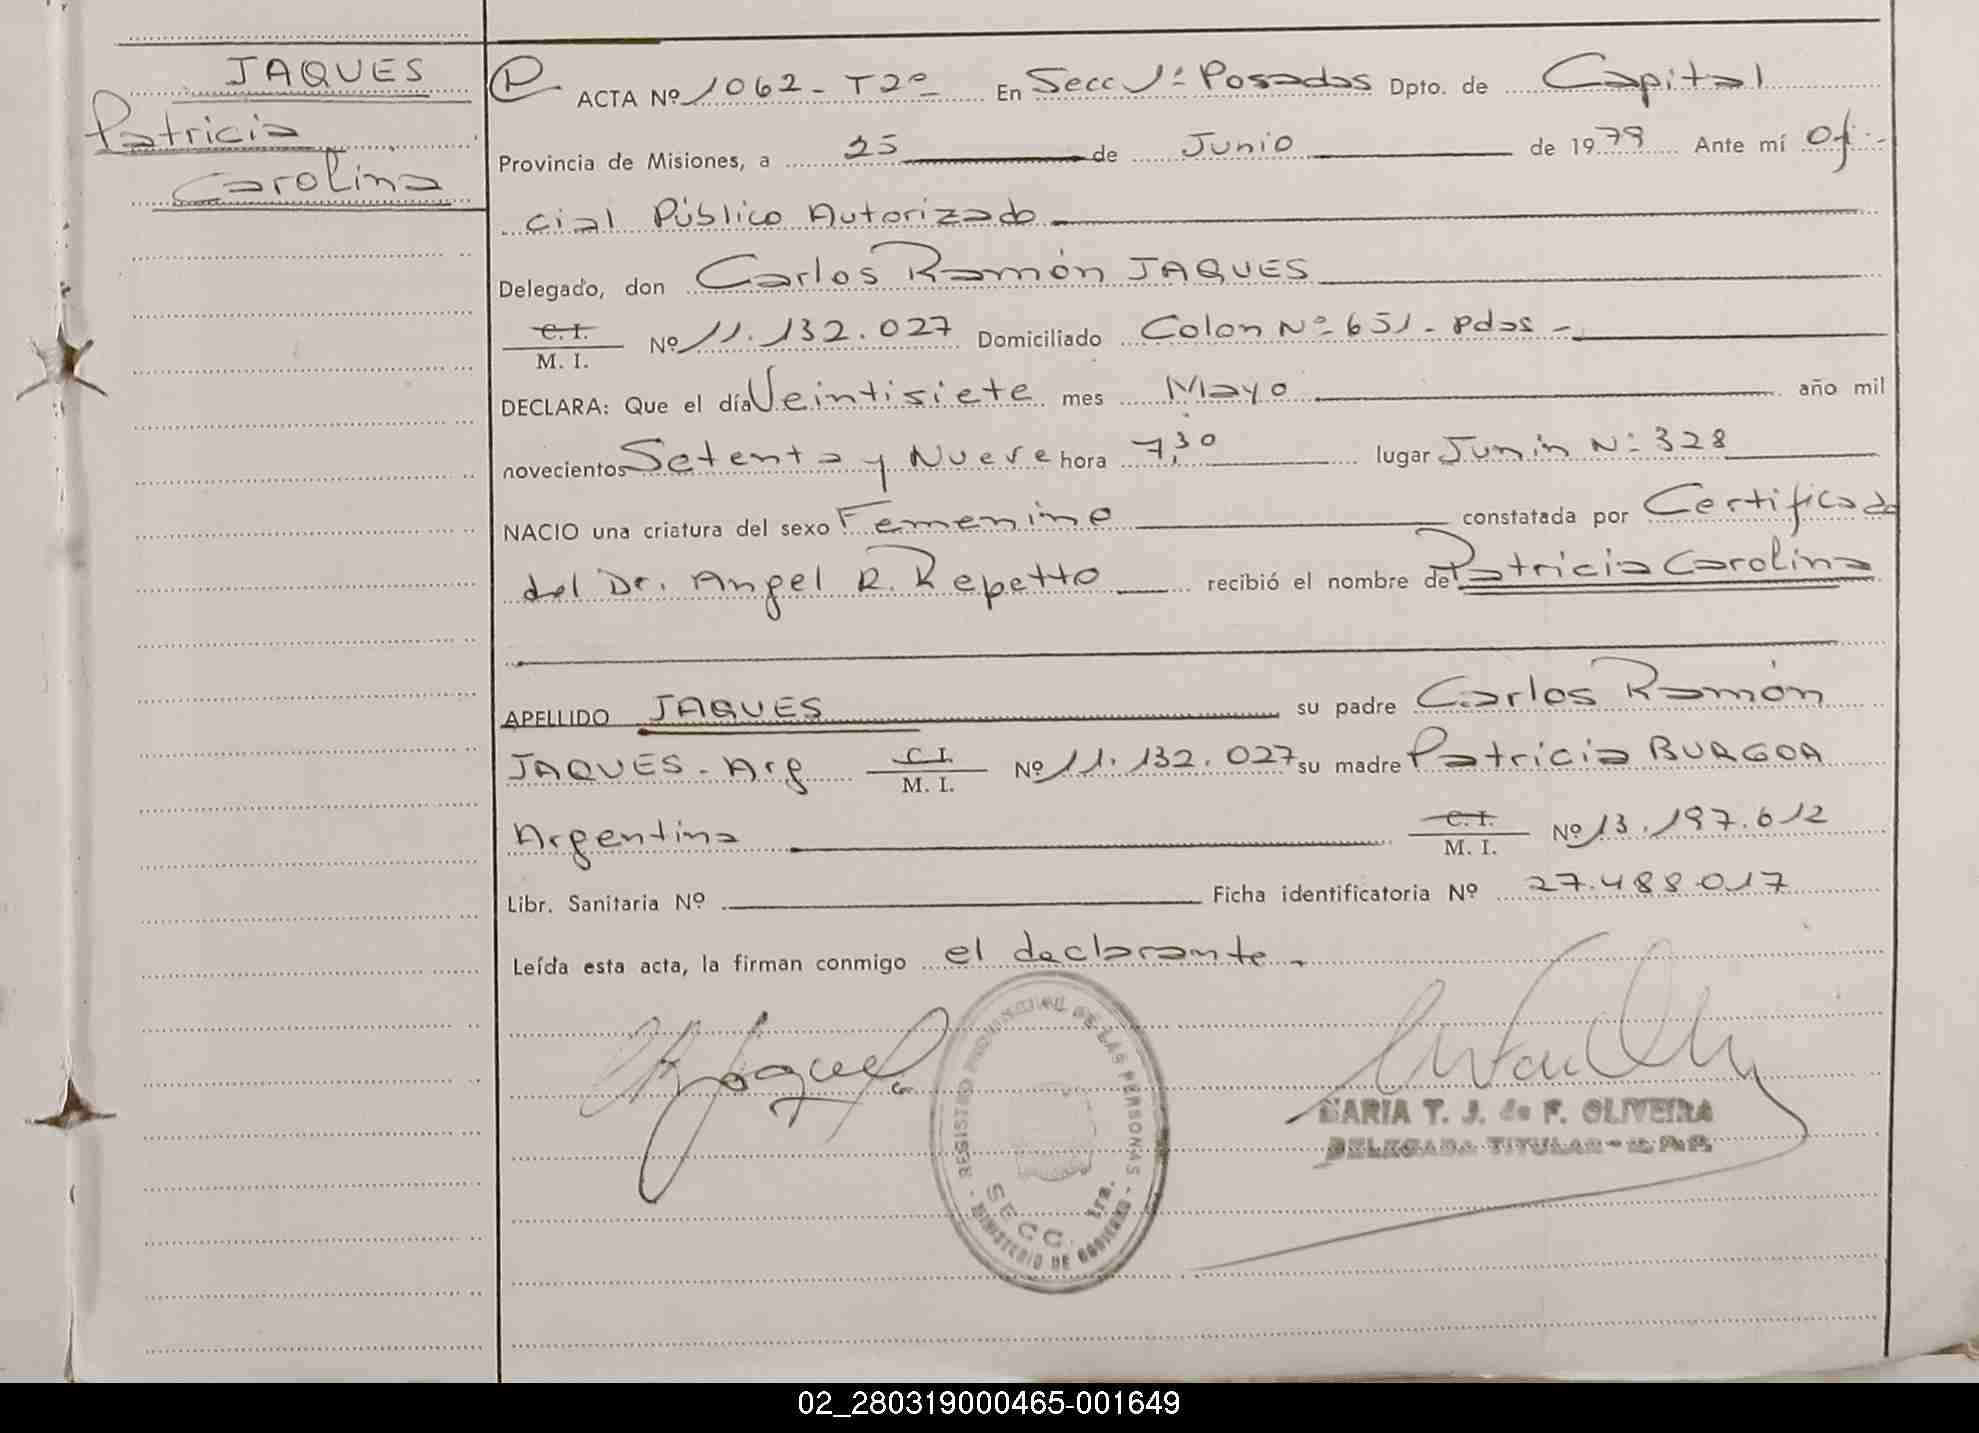 JAQUES
Patricia
Carolina
P ACTA Nº 1062 - T2º En Secc 1ª Posadas Dpto. de Capital
Provincia de Misiones, a 25 de Junio de 1979 Ante mí Ofi-
cial Público Autorizado
Delegado, don Carlos Ramón JAQUES
C. I.
M. I. Nº 11.132.027 Domiciliado Colon Nº 651 - Pdas -
DECLARA: Que el día Veintisiete mes Mayo año mil
novecientos Setenta y Nueve hora 7,30 lugar Junin Nº 328
NACIO una criatura del sexo Femenino constatada por Certificado
del Dr. Angel R. Repetto recibió el nombre de Patricia Carolina
APELLIDO JAQUES su padre Carlos Ramón
JAQUES - Arg C. I. M. I. Nº 11.132.027 su madre Patricia BURGOA
Argentina C. I. M. I. Nº 13.197.612
Libr. Sanitaria Nº Ficha identificatoria Nº 27.488.017
Leída esta acta, la firman conmigo el declarante -
REGISTRO PROVINCIAL DE LAS PERSONAS
SECC. 1ra.
MINISTERIO DE GOBIERNO
MARIA T. J. de F. OLIVEIRA
DELEGADA TITULAR - R. P. P.
02_280319000465-001649